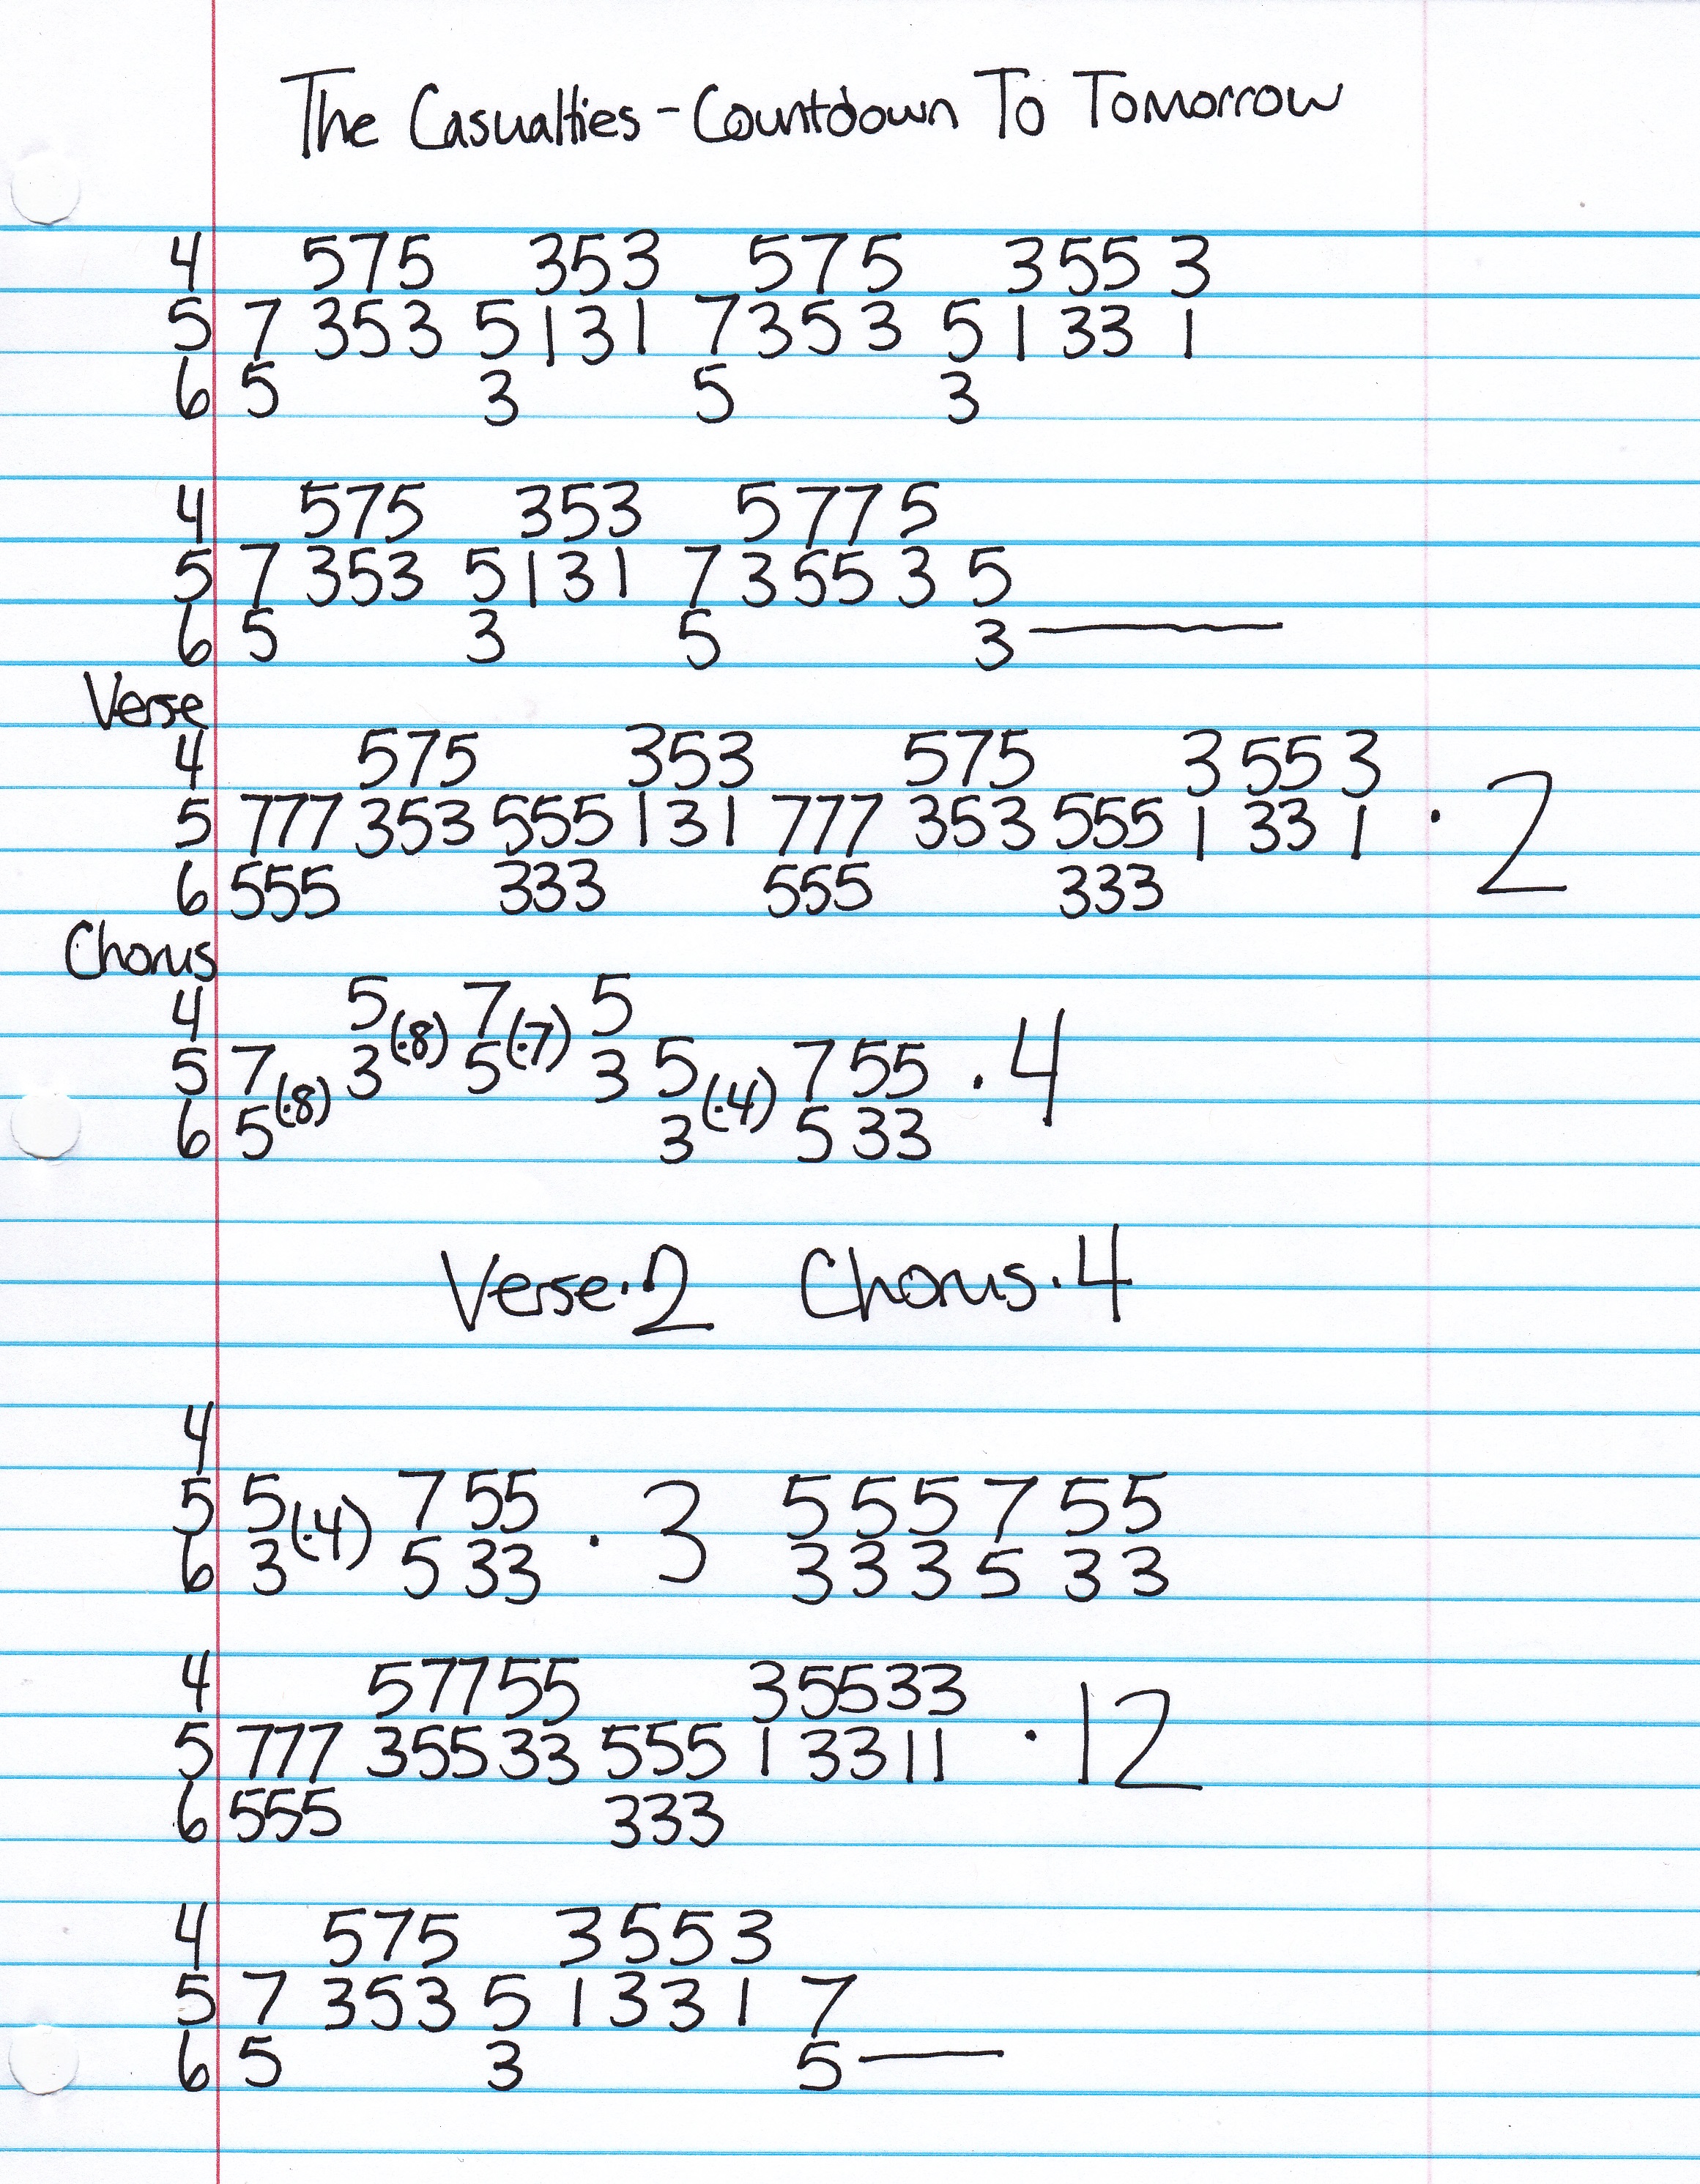 The Casualties - Countdown To Tomorrow
4 575 353 575 3553
5 7 353 5 131 7 353 5 1 33 1
6 5 3 5 3
4 575 353 5 77 5
5 7 353 5 131 7 3 55 3 5
6 5 3 5 3
Verse
4 575 353 575 3 55 3
5 777 353 555 131 777 353 555 1 33 1 · 2
6 555 333 555 333
Chorus
4 5 (·8) 7 (·7) 5
5 7 (·8) 3 5 3 5 (·4) 7 55 · 4
6 5 3 5 33
Verse · 2 Chorus · 4
4
5 5 (·4) 7 55 · 3 5 5 5 7 5 5
6 3 5 33 3 3 3 5 3 3
4 57755 35533
5 777 35533 555 1 3311 · 12
6 555 333
4 575 3553
5 7 353 5 1331 7
6 5 3 5